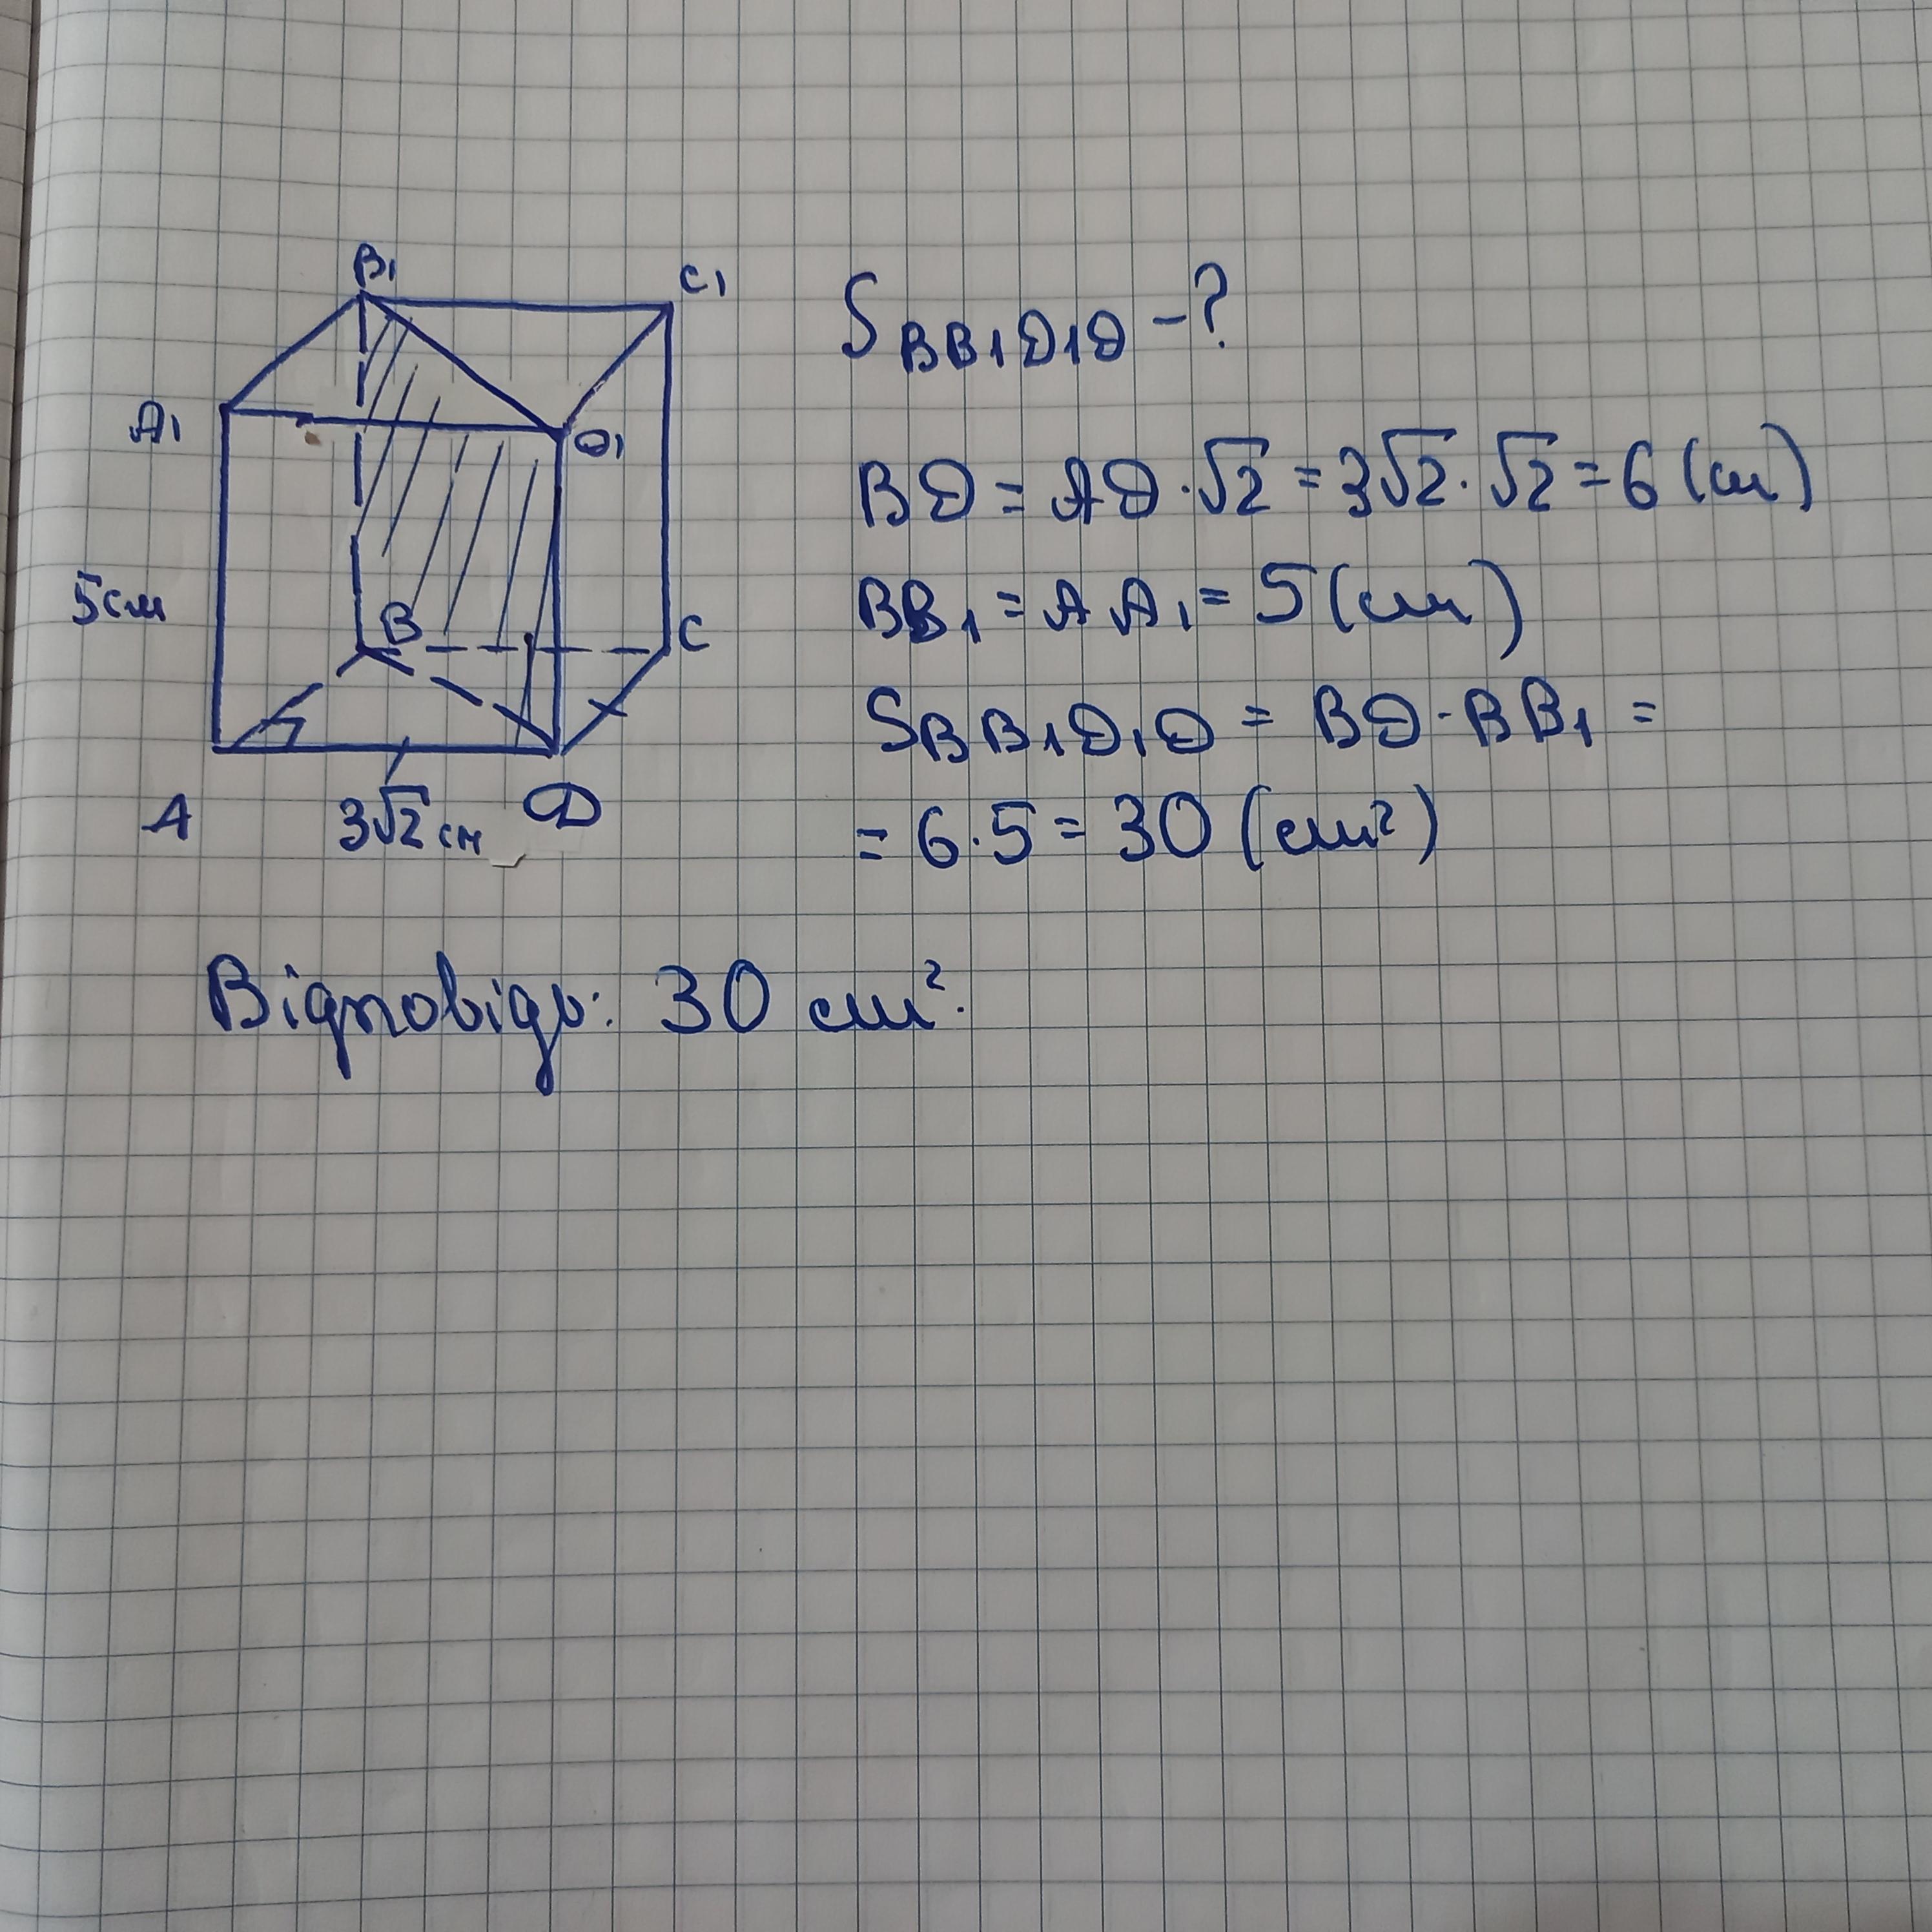 B₁
C₁
A₁
D₁
5см
B
C
A
3√2 см
D
S BB₁D₁D - ?
BD = AD · √2 = 3√2 · √2 = 6 (см)
BB₁ = AA₁ = 5 (см)
S BB₁D₁D = BD · BB₁ =
= 6 · 5 = 30 (см²)
Відповідь: 30 см².